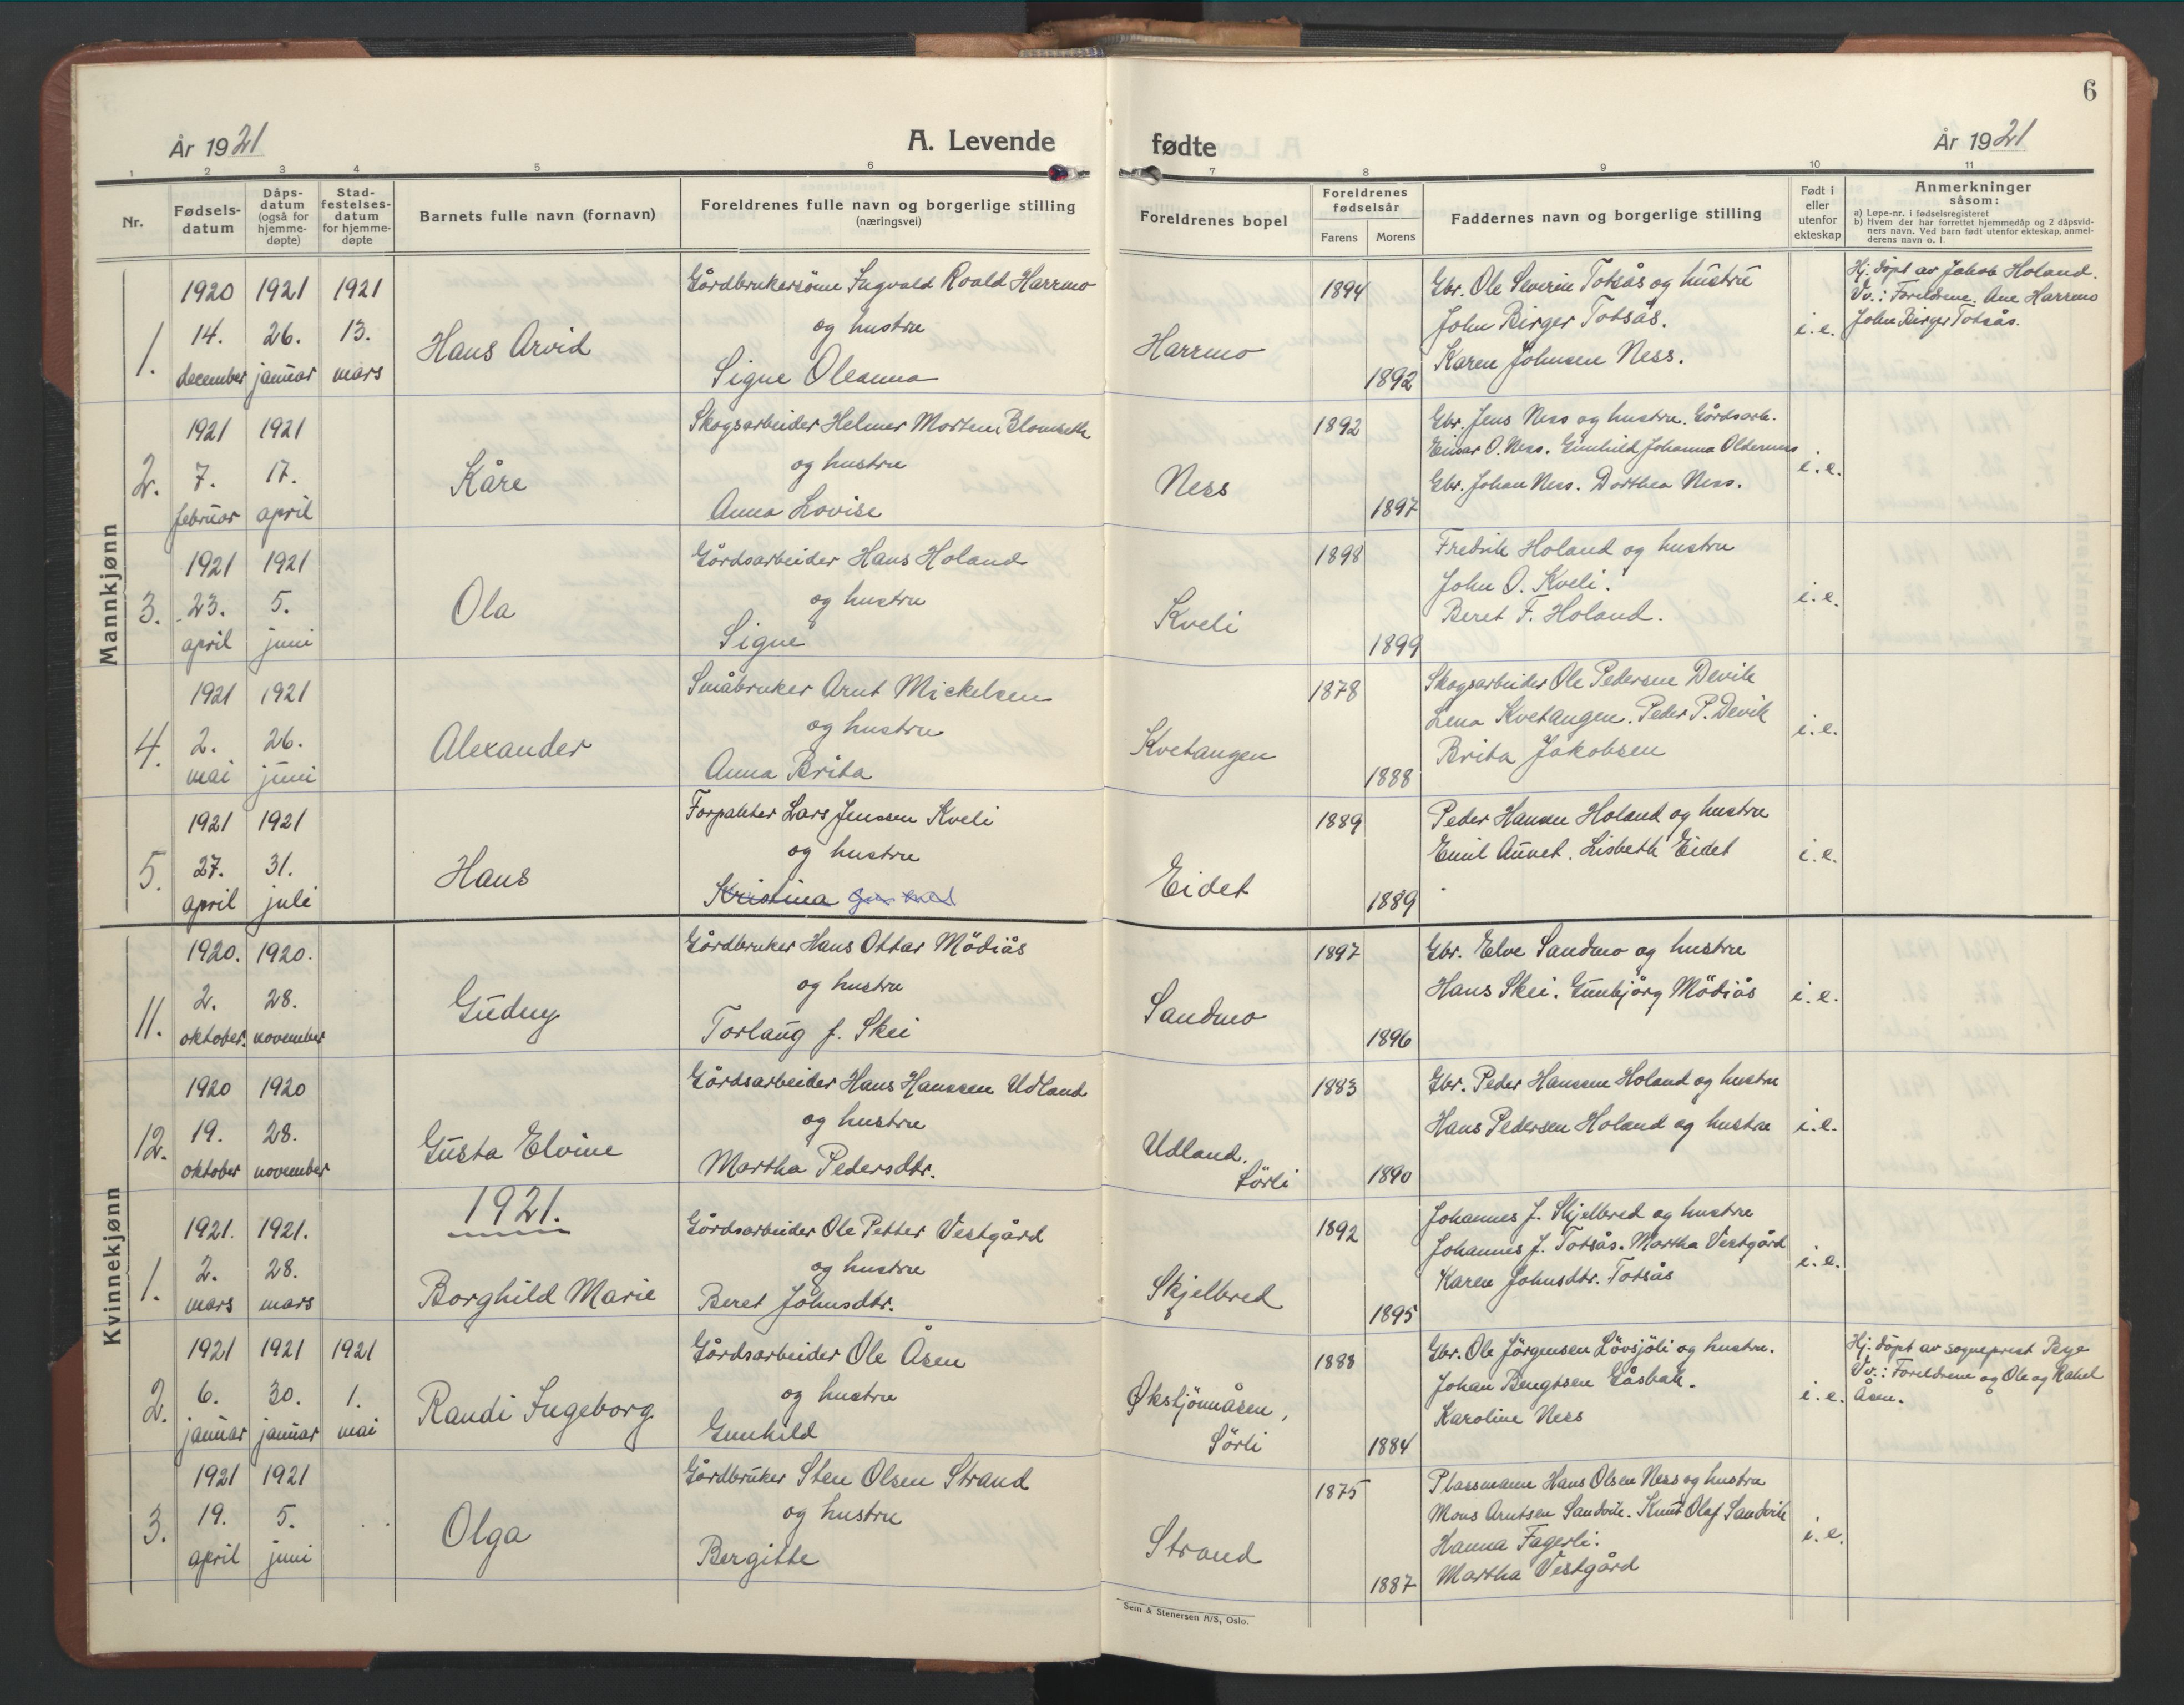 6
År 1921
A. Levende
fødte
År 1921
1 2 3 4 5 6 7 8 9 10 11
Nr.
Fødsels-
datum
Dåps-
datum
(også for
hjemme-
døpte)
Stad-
festelses-
datum
for hjemme-
døpte
Barnets fulle navn (fornavn)
Foreldrenes fulle navn og borgerlige stilling
(næringsvei)
Foreldrenes bopel
Foreldrenes
fødselsår
Farens Morens
Faddernes navn og borgerlige stilling
Født i
eller
utenfor
ekteskap
Anmerkninger
såsom:
a) Løpe-nr. i fødselsregisteret
b) Hvem der har forrettet hjemmedåp og 2 dåpsvid-
ners navn. Ved barn født utenfor ekteskap, anmel-
derens navn o. l.
Mannkjønn
1.
1920
14.
december
1921
26.
januar
1921
13.
mars
Hans Arvid
Gårdbrukersønn Ingvald Roald Harrmo
og hustru
Signe Oleanna
Harrmo
1894
1892
Gbr. Ole Severin Totsås og hustru
John Birger Totsås.
Karen Johnsen Ness.
i. e.
Hj. døpt av Jakob Holand.
Vv.: Foreldrene. Ane Harrmo
John Birger Totsås.
2.
1921
7.
februar
1921
17.
april
Kåre
Skogsarbeider Helmer Morten Blomseth
og hustru
Anna Lovise
Ness
1892
1897
Gbr. Jens Ness og hustru. Gårdsarb.
Einar O. Ness. Gunhild Johanna Oldernes
Gbr. Johan Ness. Dorthea Ness.
i. e.
3.
1921
23.
april
1921
5.
juni
Ola
Gårdsarbeider Hans Holand
og hustru
Signe
Kveli
1898
1899
Fredrik Holand og hustru
John O. Kveli.
Beret F. Holand.
i. e.
4.
1921
2.
mai
1921
26.
juni
Alexander
Småbruker Arnt Mickelsen
og hustru
Anna Brita
Kvetangen
1878
1888
Skogsarbeider Ole Pedersen Devik
Lena Kvetangen. Peder P. Devik
Brita Jakobsen
i. e.
5.
1921
27.
april
1921
31.
juli
Hans
Forpakter Lars Jenssen Kveli
og hustru
Kristina
Eidet
1889
1889
Peder Hansen Holand og hustru
Emil Aunet. Lisbeth Eidet
i. e.
Kvinnekjønn
11.
1920.
2.
oktober.
1920.
28.
november
Gudny
Gårdbruker Hans Ottar Mödiås
og hustru
Torlaug f. Skei
Sandmo
1897
1896
Gbr. Elve Sandmo og hustru
Hans Skei. Gunbjörg Mödiås
i. e.
12.
1920
19.
oktober
1920
28.
november
Gusta Elvine
Gårdsarbeider Hans Hanssen Udland
og hustru
Martha Pedersdtr.
Udland.
Sörli
1883
1890
Gbr. Peder Hanssen Holand og hustru
Hans Pedersen Holand og hustru
i. e.
1921.
1.
1921.
2.
mars
1921.
28.
mars
Borghild Marie
Gårdsarbeider Ole Petter Vestgård
og hustru
Beret Johnsdtr.
Skjelbred
1892
1895
Johannes J. Skjelbred og hustru
Johannes J. Totsås. Martha Vestgård
Karen Johnsdtr. Totsås
i. e.
2.
1921
6.
januar
1921
30.
januar
1921
1.
mai
Randi Ingeborg
Gårdsarbeider Ole Åsen
og hustru
Gunhild
Økstjönnåsen,
Sörli
1888
1884
Gbr. Ole Jörgensen Lövsjöli og hustru.
Johan Bengtsen Gåsbak.
Karoline Ness
i. e.
Hj. døpt av sogneprest Bye
Vv.: Foreldrene og Ole og Rakel
Åsen.
3.
1921
19.
april
1921
5.
juni
Olga
Gårdbruker Sten Olsen Strand
og hustru
Bergitte
Strand
1875
1887
Plassmann Hans Olsen Ness og hustru
Mons Arntsen Sandvik. Knut Olaf Sandvik
Hanna Fagerli.
Martha Vestgård
i. e.
Sem & Stenersen A/S, Oslo.